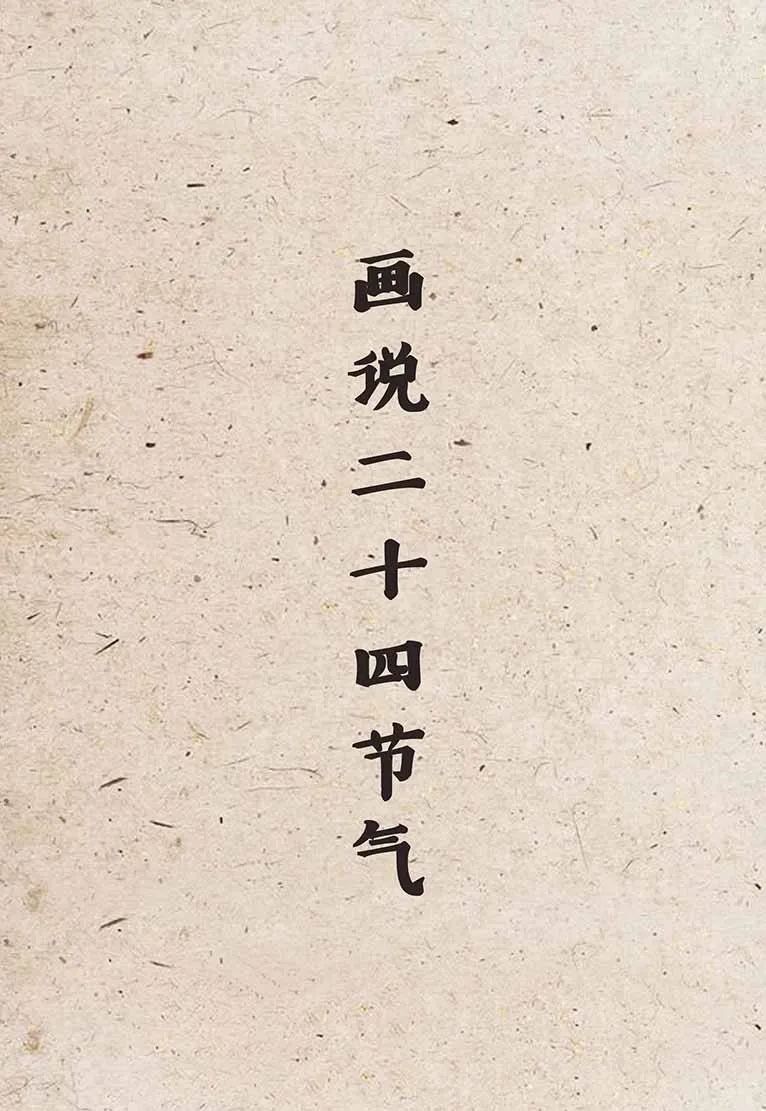 画说二十四节气